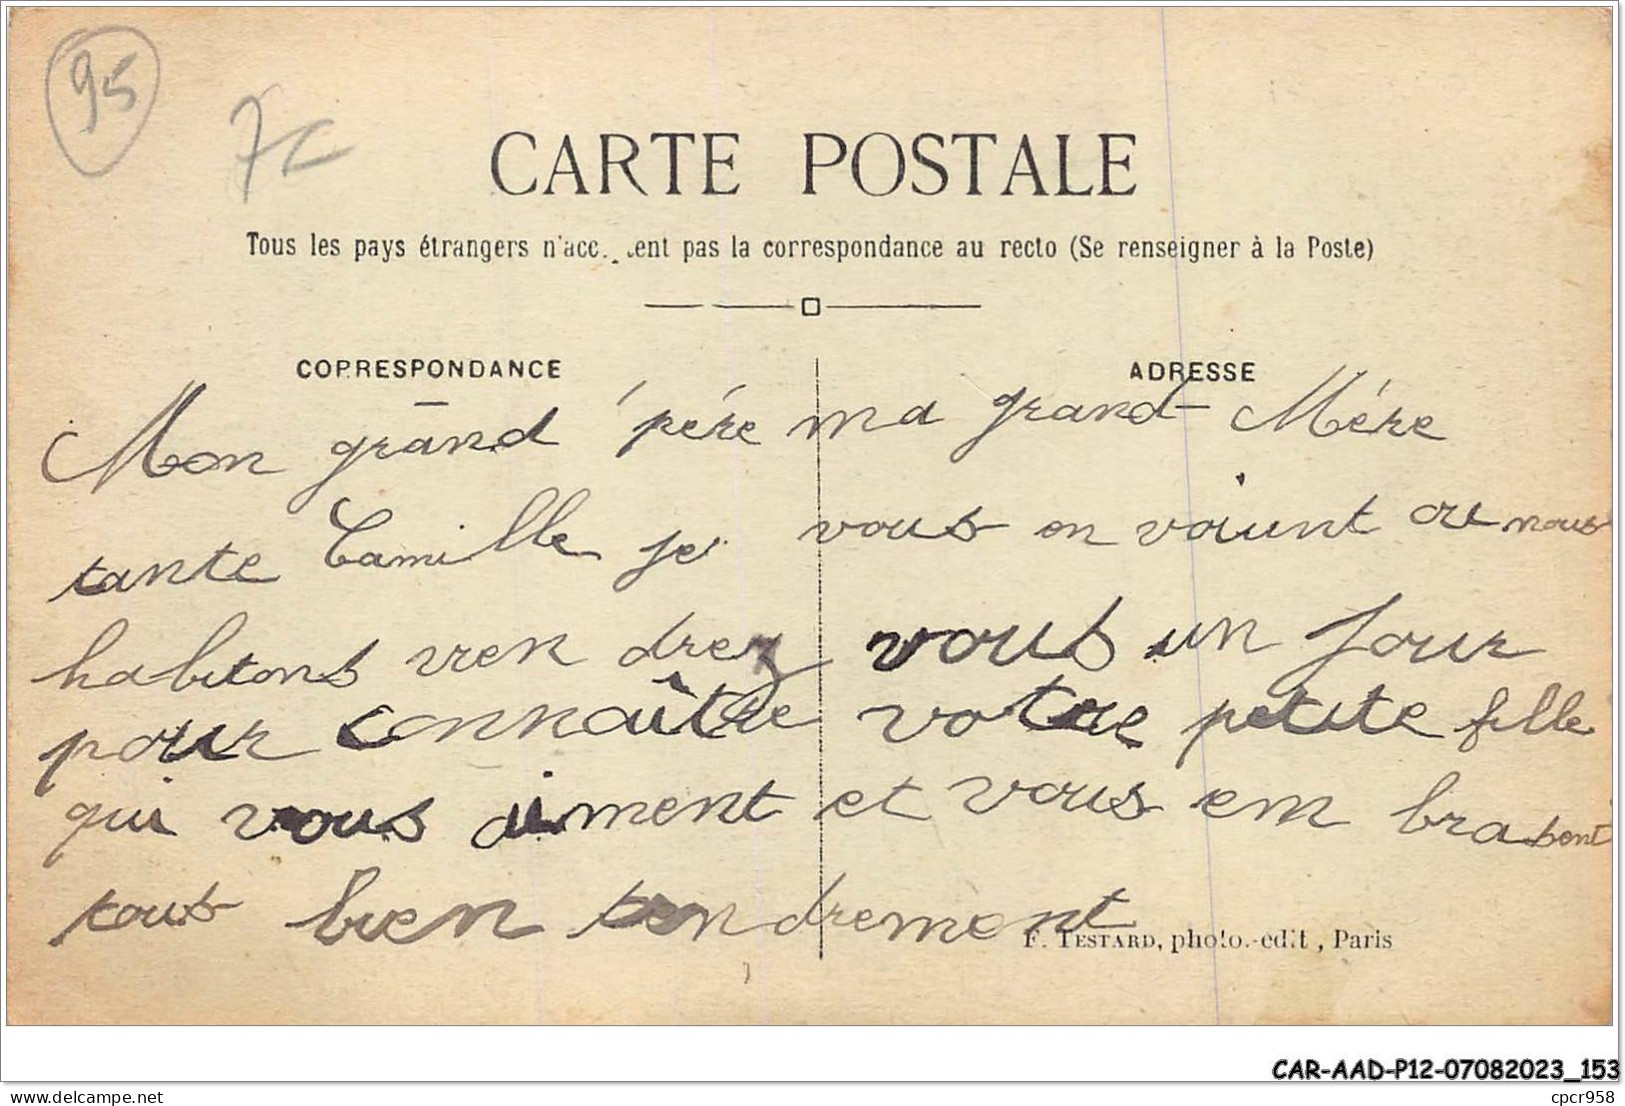 95
7c
CARTE POSTALE
Tous les pays étrangers n'acc. .ent pas la correspondance au recto (Se renseigner à la Poste)
CORRESPONDANCE
ADRESSE
Mon grand père ma grand Mére
tante Camille je vous en voiunt ou nous
habitons vien drez vous un jour
pour connaître votre petite fille
qui vous aiment et vous em brasent
tous bien tendrement
F. TESTARD, photo.-edit, Paris
CAR-AAD-P12-07082023_153
delcampe.net
cpcr958